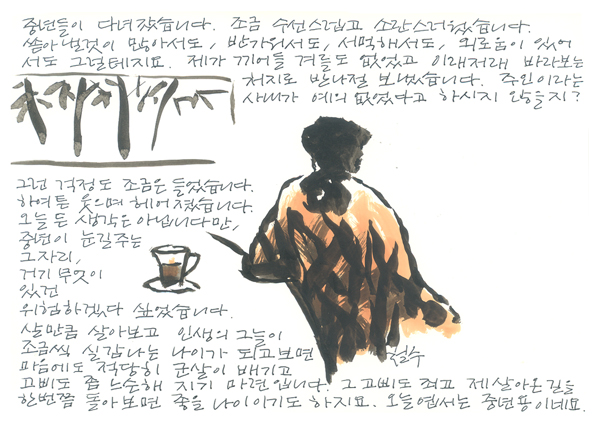 중년들이 다녀 갔습니다. 조금 수선스럽고 소란스러웠습니다.
쏟아낼것이 많아서도, 반가워서도, 서먹해서도, 외로움이 있어
서도 그럴테지요. 제가 끼어들 겨를도 없었고 이래저래 바라보는
처지로 반나절 보냈습니다. 주인이라는
사내가 예의 없었다고 하시지 않을지?
그런 걱정도 조금은 들었습니다.
하여튼 웃으며 헤어졌습니다.
오늘 든 생각은 아닙니다만,
중년이 눈길주는
그자리,
거기 무엇이
있건
위험하겠다 싶었습니다.
살만큼 살아보고 인생의 그늘이
조금씩 실감나는 나이가 되고보면
마음에도 적당히 군살이 배기고
고삐도 좀 느슨해 지기 마련입니다. 그 고삐도 죄고 제 살아온 길을
한번쯤 돌아보면 좋을 나이이기도 하지요. 오늘 엽서는 중년풍이네요.
철수